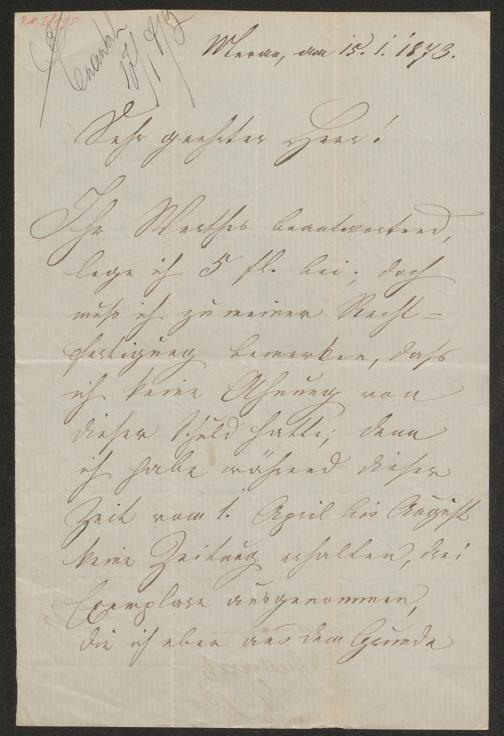 Meran, am 15. 1. 1873.
Sehr geehrter Herr!
Ihr Werthes beantwortend,
lege ich 5 fl. bei; doch
muß ich zu meiner Recht=
fertigung bemerken, daß
ich keine Ahnung von
dieser Schuld hatte; denn
ich habe während dieser
Zeit vom 1. April bis August
keine Zeitung erhalten, drei
Exemplare ausgenommen,
die ich eben aus dem Grunde